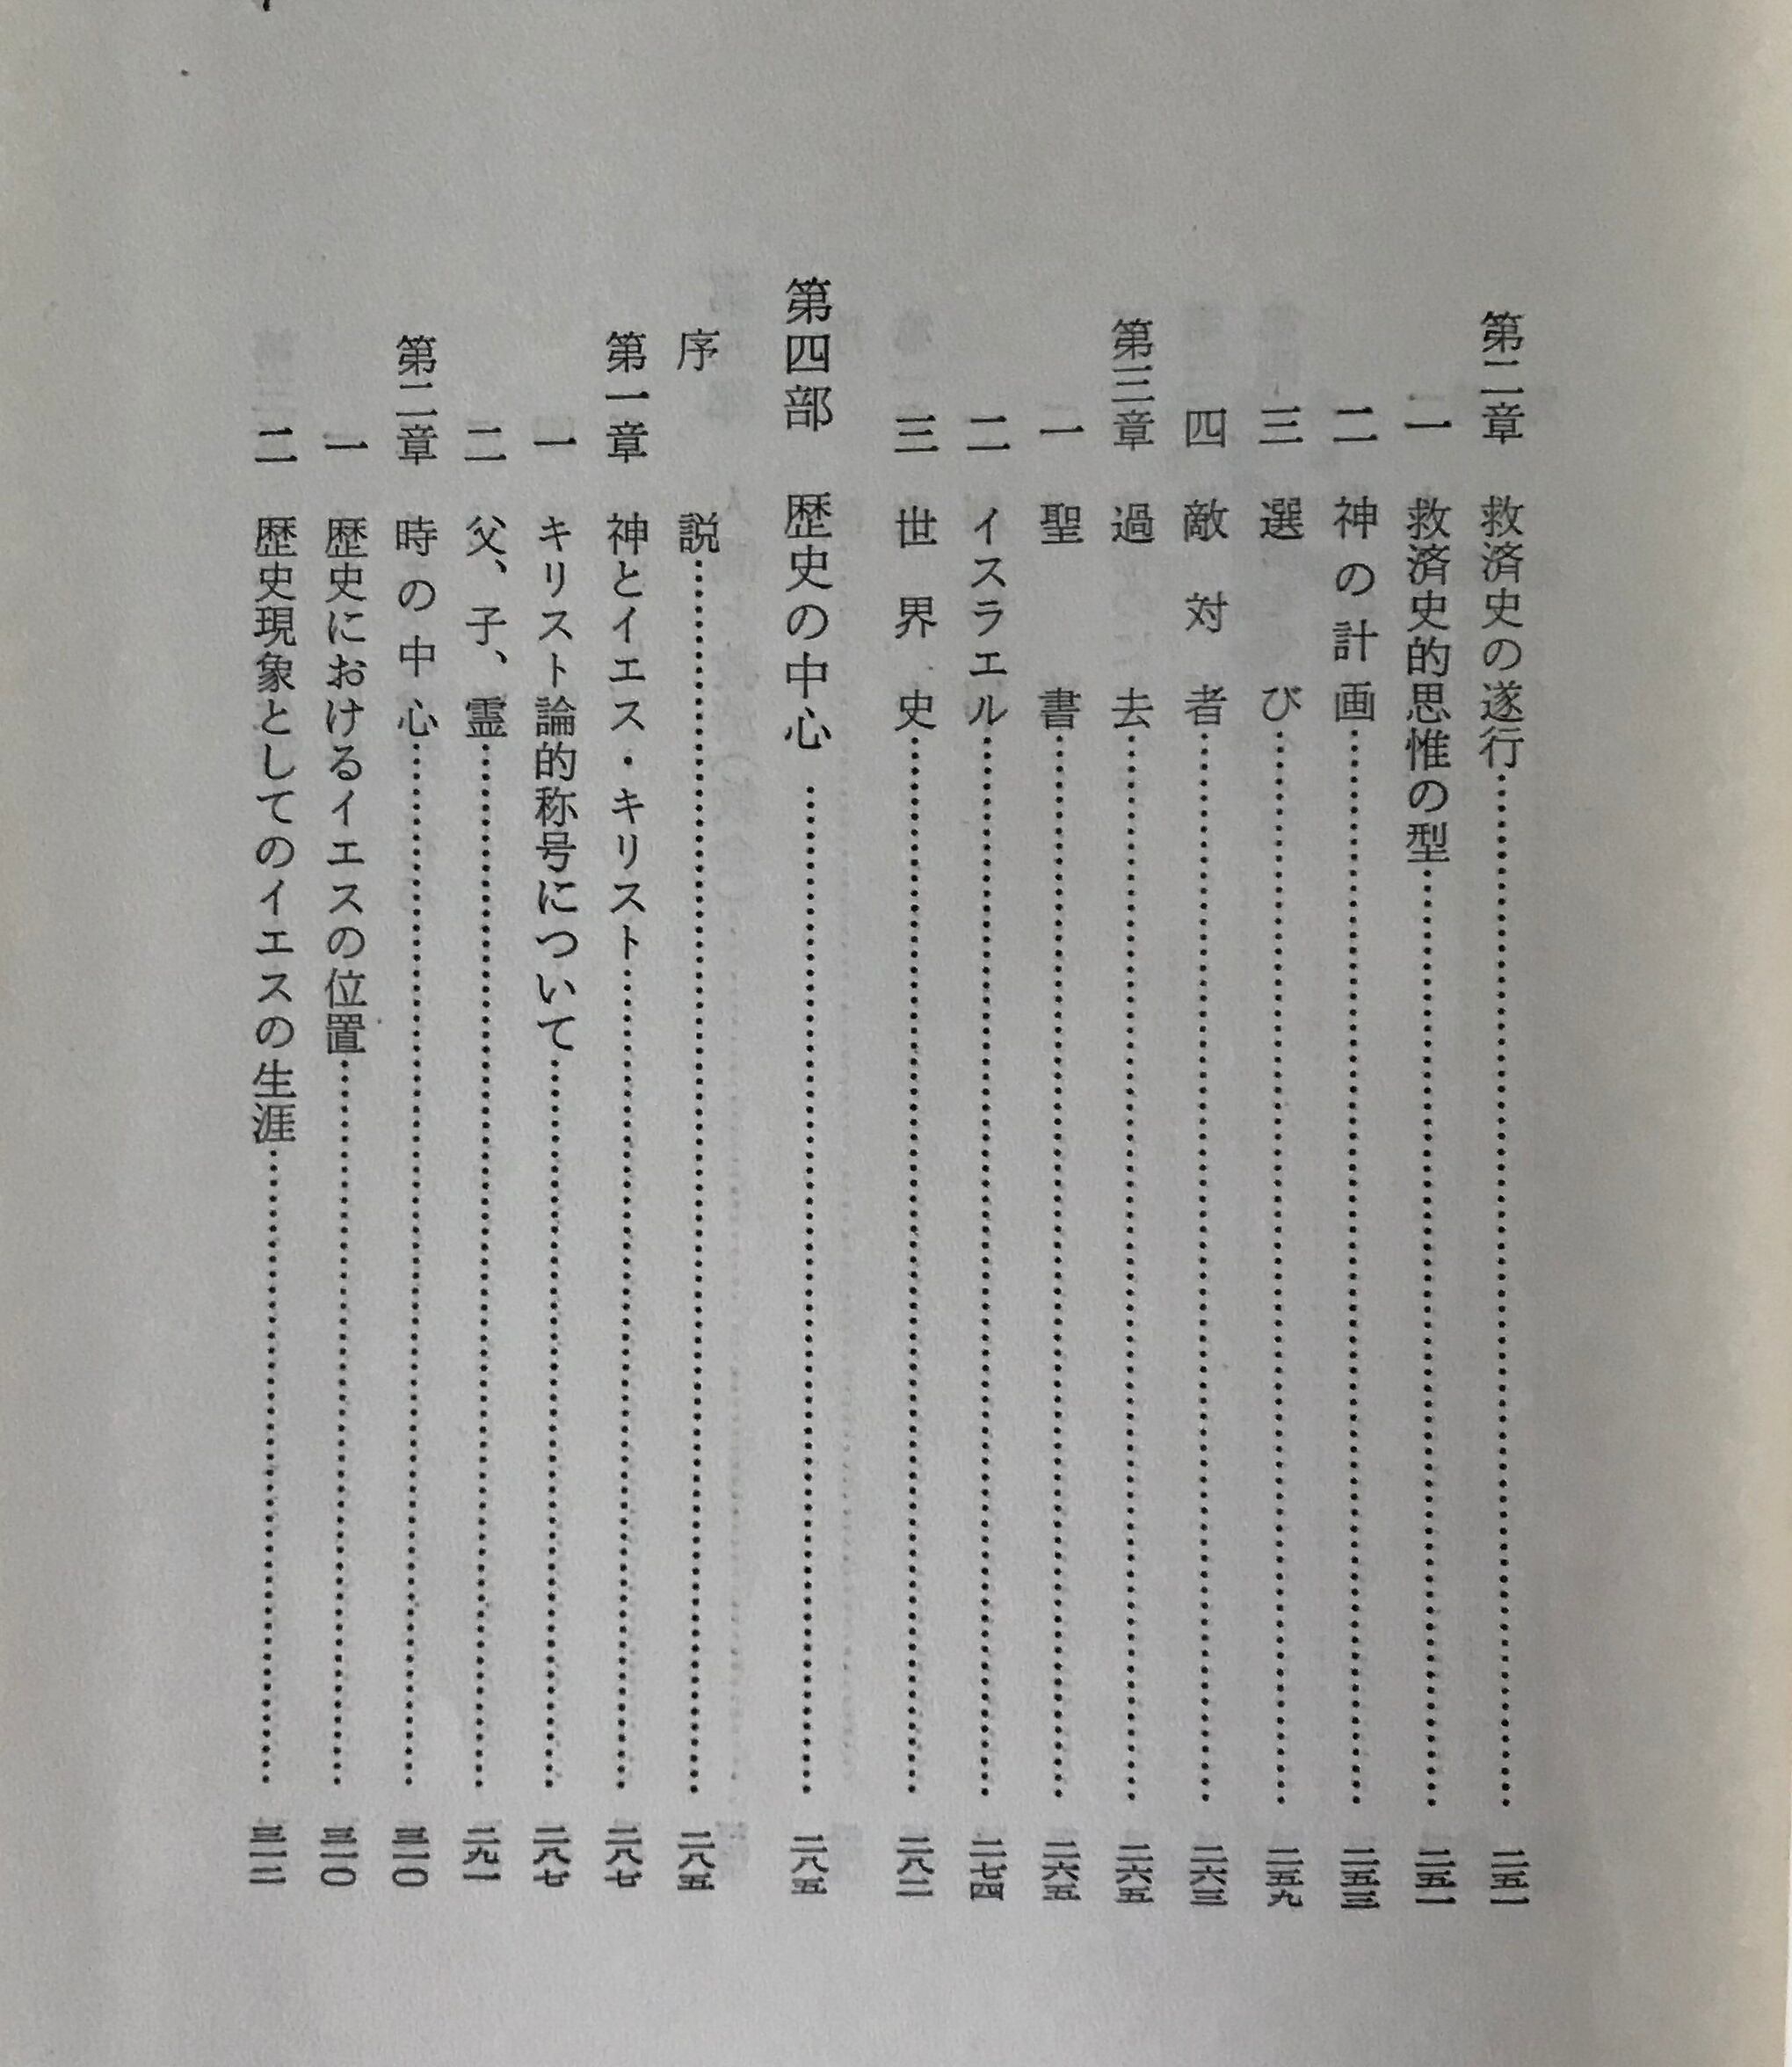 第二章　救済史の遂行……二五一
一　救済史的思惟の型……二五一
二　神の計画……二五三
三　選び……二五九
四　敵対者……二六三
第三章　過去……二六五
一　聖書……二六五
二　イスラエル……二七四
三　世界史……二八二
第四部　歴史の中心……二八五
序説……二八五
第一章　神とイエス・キリスト……二八七
一　キリスト論的称号について……二八七
二　父、子、霊……二九一
第二章　時の中心……三一〇
一　歴史におけるイエスの位置……三一〇
二　歴史現象としてのイエスの生涯……三一二